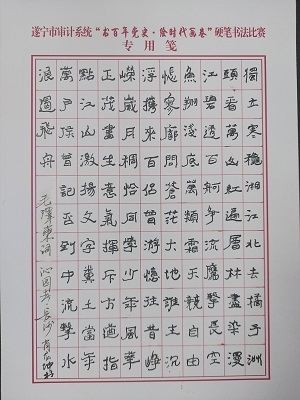 遂宁市审计系统“书百年党史·绘时代画卷”硬笔书法比赛
专用笺
獨立寒穐湘江北去橘子洲
頭看萬山紅遍層林盡染漫
江碧透百舸爭流鷹擊長空
魚翔淺底萬類霜天競自由
悵寥廓問蒼茫大地誰主沉
浮攜來百侶曾游憶往昔崢
嶸歲月稠恰同學少年風華
正茂書生意氣揮斥方遒指
點江山激揚文字糞土當年
萬戶侯曾記否到中流擊水
浪遏飛舟
毛澤東詞 沁園春·長沙